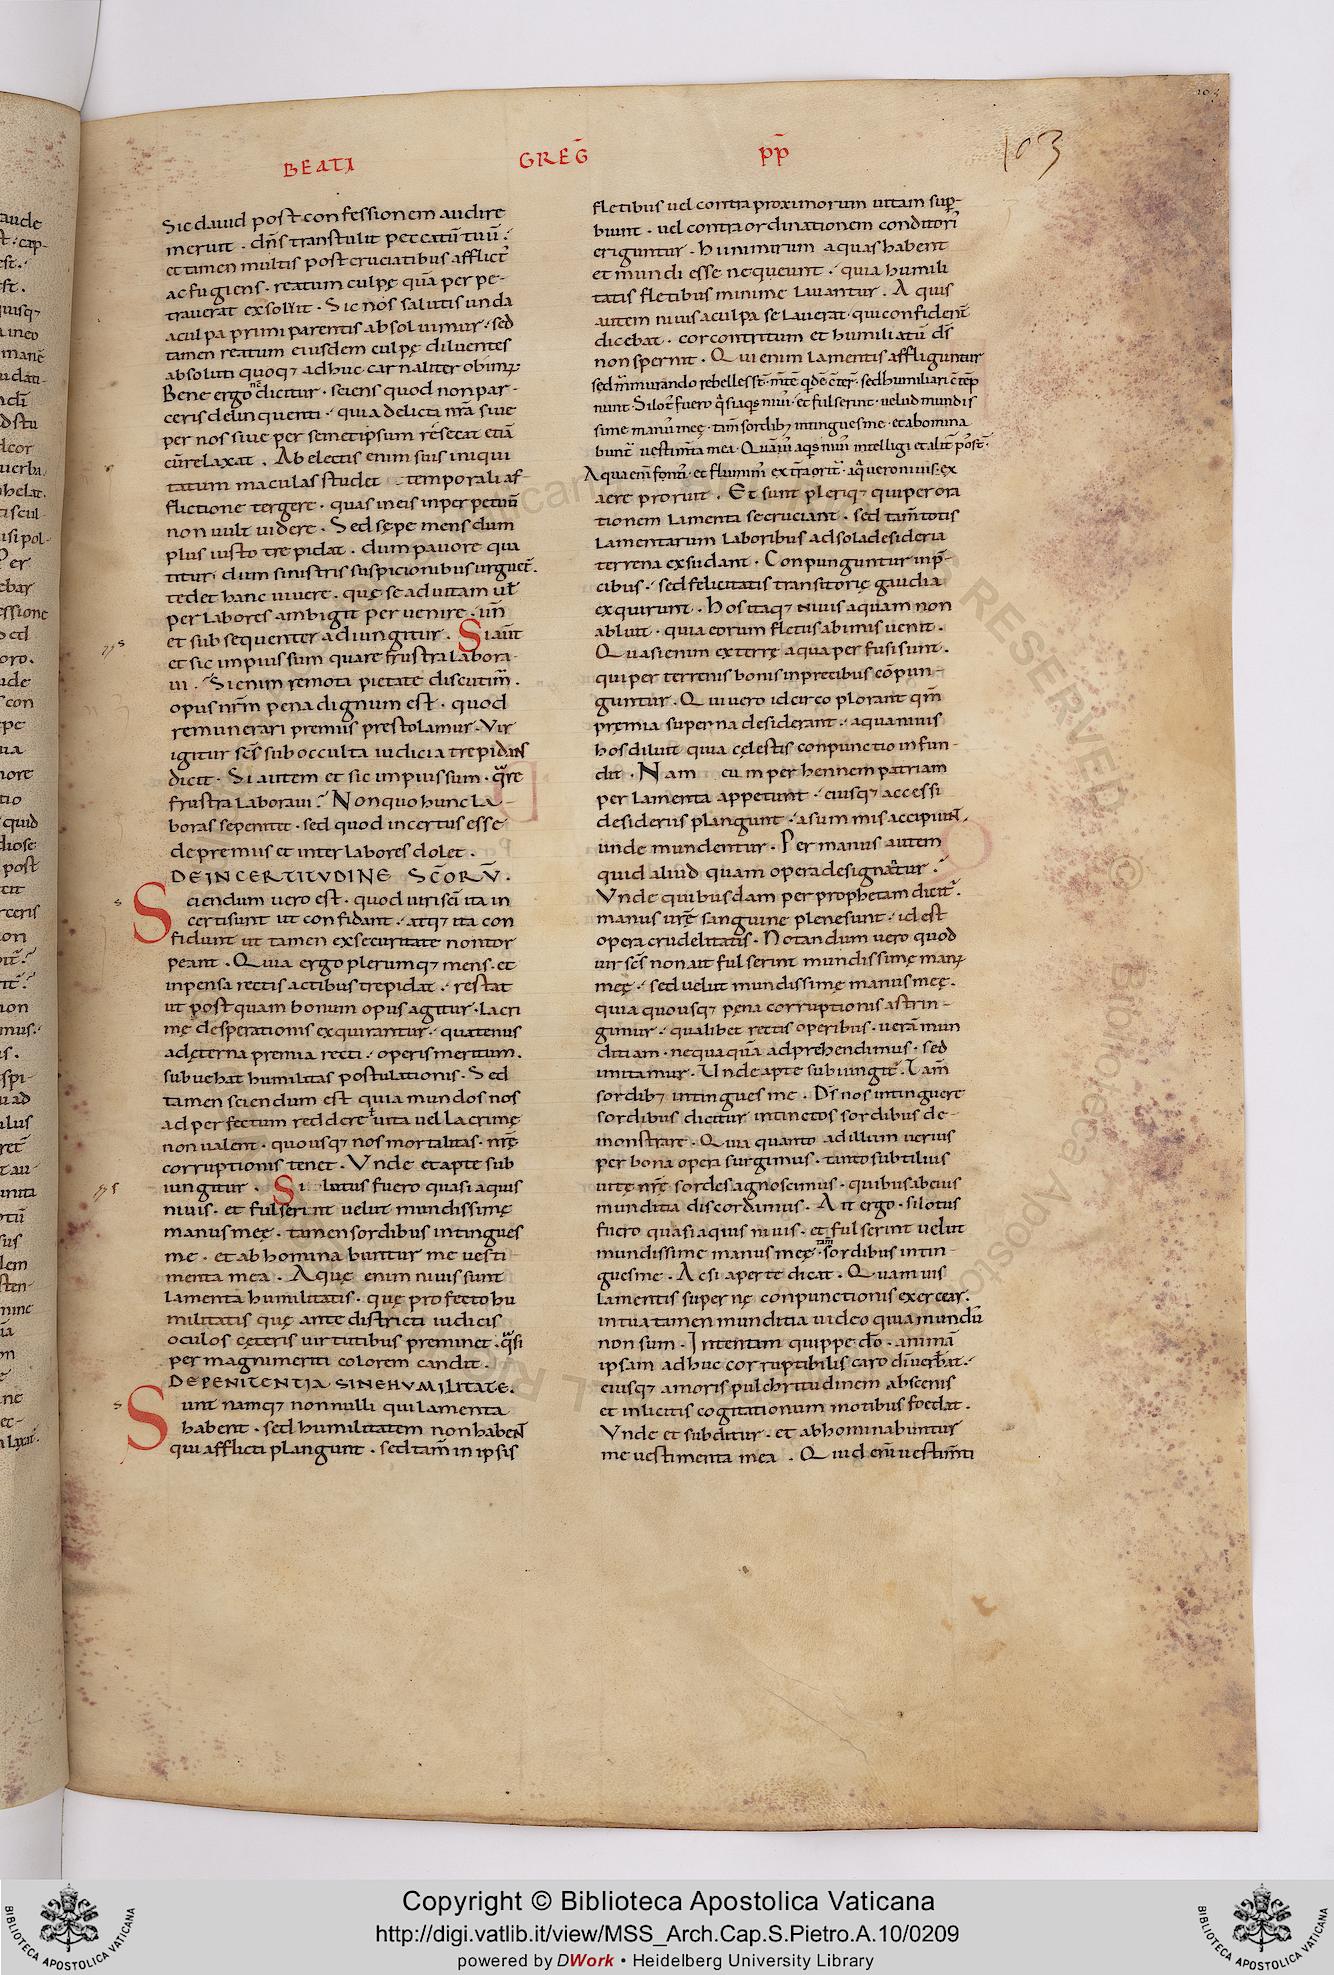 BEATI GREḠ PP̄
103
Sic dauid post confessionem audire
meruit · dn̄s transtulit peccatū tuū ·
et tamen multis post cruciatibus afflict᷒
ac fugiens · reatum culpę quā perpe-
trauerat exsoluit · Sic nos salutis unda
a culpa primi parentis absoluimur · sed
tamen reatum eiusdem culpę diluentes
absoluti quoq; adhuc carnaliter obimꝰ
Bene ergo nc̄ dicitur · sciens quod non par-
ceris delinquenti · quia delicta nr̄a siue
per nos siue per semetipsum resecat etiā
cū relaxat · Ab electis enim suis iniqui
tatum maculas studet temporali af-
flictione tergere · quas in eis inperpetuū
non uult uidere · Sed sępe mens dum
plus iusto trepidat · dum pauore qua
titur · dum sinistris suspicionibus urguet᷒ ·
tedet hanc uiuere · quę se ad uitam ul̄
per labores ambigit peruenire · un̄
et subsequenter adiungitur · Si aut̄
et sic impius sum quare frustra labora-
ui · Si enim remota pietate discutim᷒ ·
opus nr̄m pena dignum est · quod
remunerari premiis prestolamur · Vir
igitur sc̄s sub occulta iudicia trepidans
dicit · Si autem et sic impius sum · quare
frustra laboraui · Non quo hunc la-
boras sepenitit · sed quod incertus esse
de premiis et inter labores dolet ·
DE INCERTITVDINE SC̄ORV̄ ·
Sciendum uero est · quod uiri sc̄i ita in
certi sunt ut confidant · atq; ita con
fidunt ut tamen ex securitate non tor
peant · Quia ergo plerumq; mens · et
inpensa rectis actibus trepidat · restat
ut postquam bonum opus agitur · lacri
mę desperationis exquirantur · quatenus
ad ęterna premia recti · operis meritum ·
subuehat humilitas postulationis · Sed
tamen sciendum est quia mundos nos
ad perfectum reddere ł uita uel lacrimę
non ualent · quousq; nos mortalitas · nr̄ę
corruptionis tenet · Vnde et apte sub
iungitur · Si lotus fuero quasi aquis
niuis · et fulserint uelut mundissimę
manus meę · tamen sordibus intingues
me · et abhominabuntur me uesti
menta mea · Aquę enim niuis sunt
lamenta humilitatis · quę profecto hu
militatis quę ante districti iudicis
oculos cęteris uirtutibus preminet · q̄si
per magni meriti colorem candit ·
DE PENITENTIA SINE HVMILITATE ·
Sunt namq; nonnulli qui lamenta
habent · sed humilitatem non habent
qui afflicti plangunt · sed tam̄ in ipsis
fletibus uel contra proximorum uitam sup̄-
biunt · uel contra ordinationem conditori᷒
eriguntur · Hi nimirum aquas habent
et mundi esse nequeunt · quia humili
tatis fletibus minime lauantur · Aquis
autem niuis a culpa se lauerat · qui confident̄
dicebat · cor contritum et humiliatū ds̄
non spernit · Qui enim lamentis affliguntur
sed murmurando rebelles st̄ · mt̄e q̇dē ct̄er᷒ · sed humiliari ct̄ēp
nunt · Si lot᷒ fuero q̄si aq̇s niuis · et fulserint · uelud mundis
sime man᷒ meę · tam̄ sordib; intingues me · et abomina
bunt᷒ uestim̄ta mea · Quāuis aq̇s niuis intelligi et alit̄ poss̄t ·
Aqua em̄ fontis · et fluminis ex tr̄a orit᷒ · aq̄ uero niuis · ex
aere proruit · Et sunt pleriq; qui per ora
tionem lamenta se cruciant · sed tam̄ totis
lamentarum laboribus ad sola desideria
terrena exsudant · Conpunguntur in p̄-
cibus · sed felicitatis transitorię gaudia
exquirunt · Hos itaq; niuis aquam non
abluit · quia eorum fletus ab imis uenit ·
Quasi enim ex terrę aqua perfusi sunt ·
qui per terrenis bonis in precibus cōpun-
guntur · Qui uero idcirco plorant qm̄
premia superna desiderant · aqua niuis
hos diluit quia cęlestis conpunctio infun-
dit · Nam cum perhennem patriam
per lamenta appetunt · eiusq; accessi
desideriis plangunt · a summis accipiunt ·
unde mundentur · Per manus autem
quid aliud quam opera designatur ·
Vnde quibusdam per prophetam dicit᷒ ·
manus ur̄ę sanguine plene sunt · id est
opera crudelitatis · Notandum uero quod
uir sc̄s non ait fulserint mundissimę manꝰ
meę · sed uelut mundissimę manus meę ·
quia quousq; pęna corruptionis astrin-
gimur · qualibet rectis operibus · uerā mun
ditiam · nequaquā adprehendimus · sed
imitamur · Unde apte subiungit᷒ · Tam̄
sordib; intingues me · Ds̄ nos intinguere
sordibus dicitur intinctos sordibus de-
monstrare · Quia quanto ad illum uerius
per bona opera surgimus · tanto subtilius
uitę nr̄ę sordes agnoscimus · quibus ab eius
munditia discordamus · Ait ergo · si lotus
fuero quasi aquis niuis · et fulserint uelut
mundissime manus meę · tam̄ sordibus intin-
gues me · Ac si aperte dicat · Quamuis
lamentis supernę conpunctionis exercear ·
in tua tamen munditia uideo quia mund᷒
non sum · Intentam quippe dō · animā
ipsam adhuc corruptibilis caro diuerb̄at ·
eiusq; amoris pulchritudinem absceni s
et inlicitis cogitationum motibus foedat ·
Vnde et subditur · et abhominabuntur
me uestimenta mea · Quid em̄ uestim̄ti
Copyright © Biblioteca Apostolica Vaticana
http://digi.vatlib.it/view/MSS_Arch.Cap.S.Pietro.A.10/0209
powered by DWork • Heidelberg University Library
BIBLIOTECA APOSTOLICA VATICANA
BIBLIOTECA APOSTOLICA VATICANA